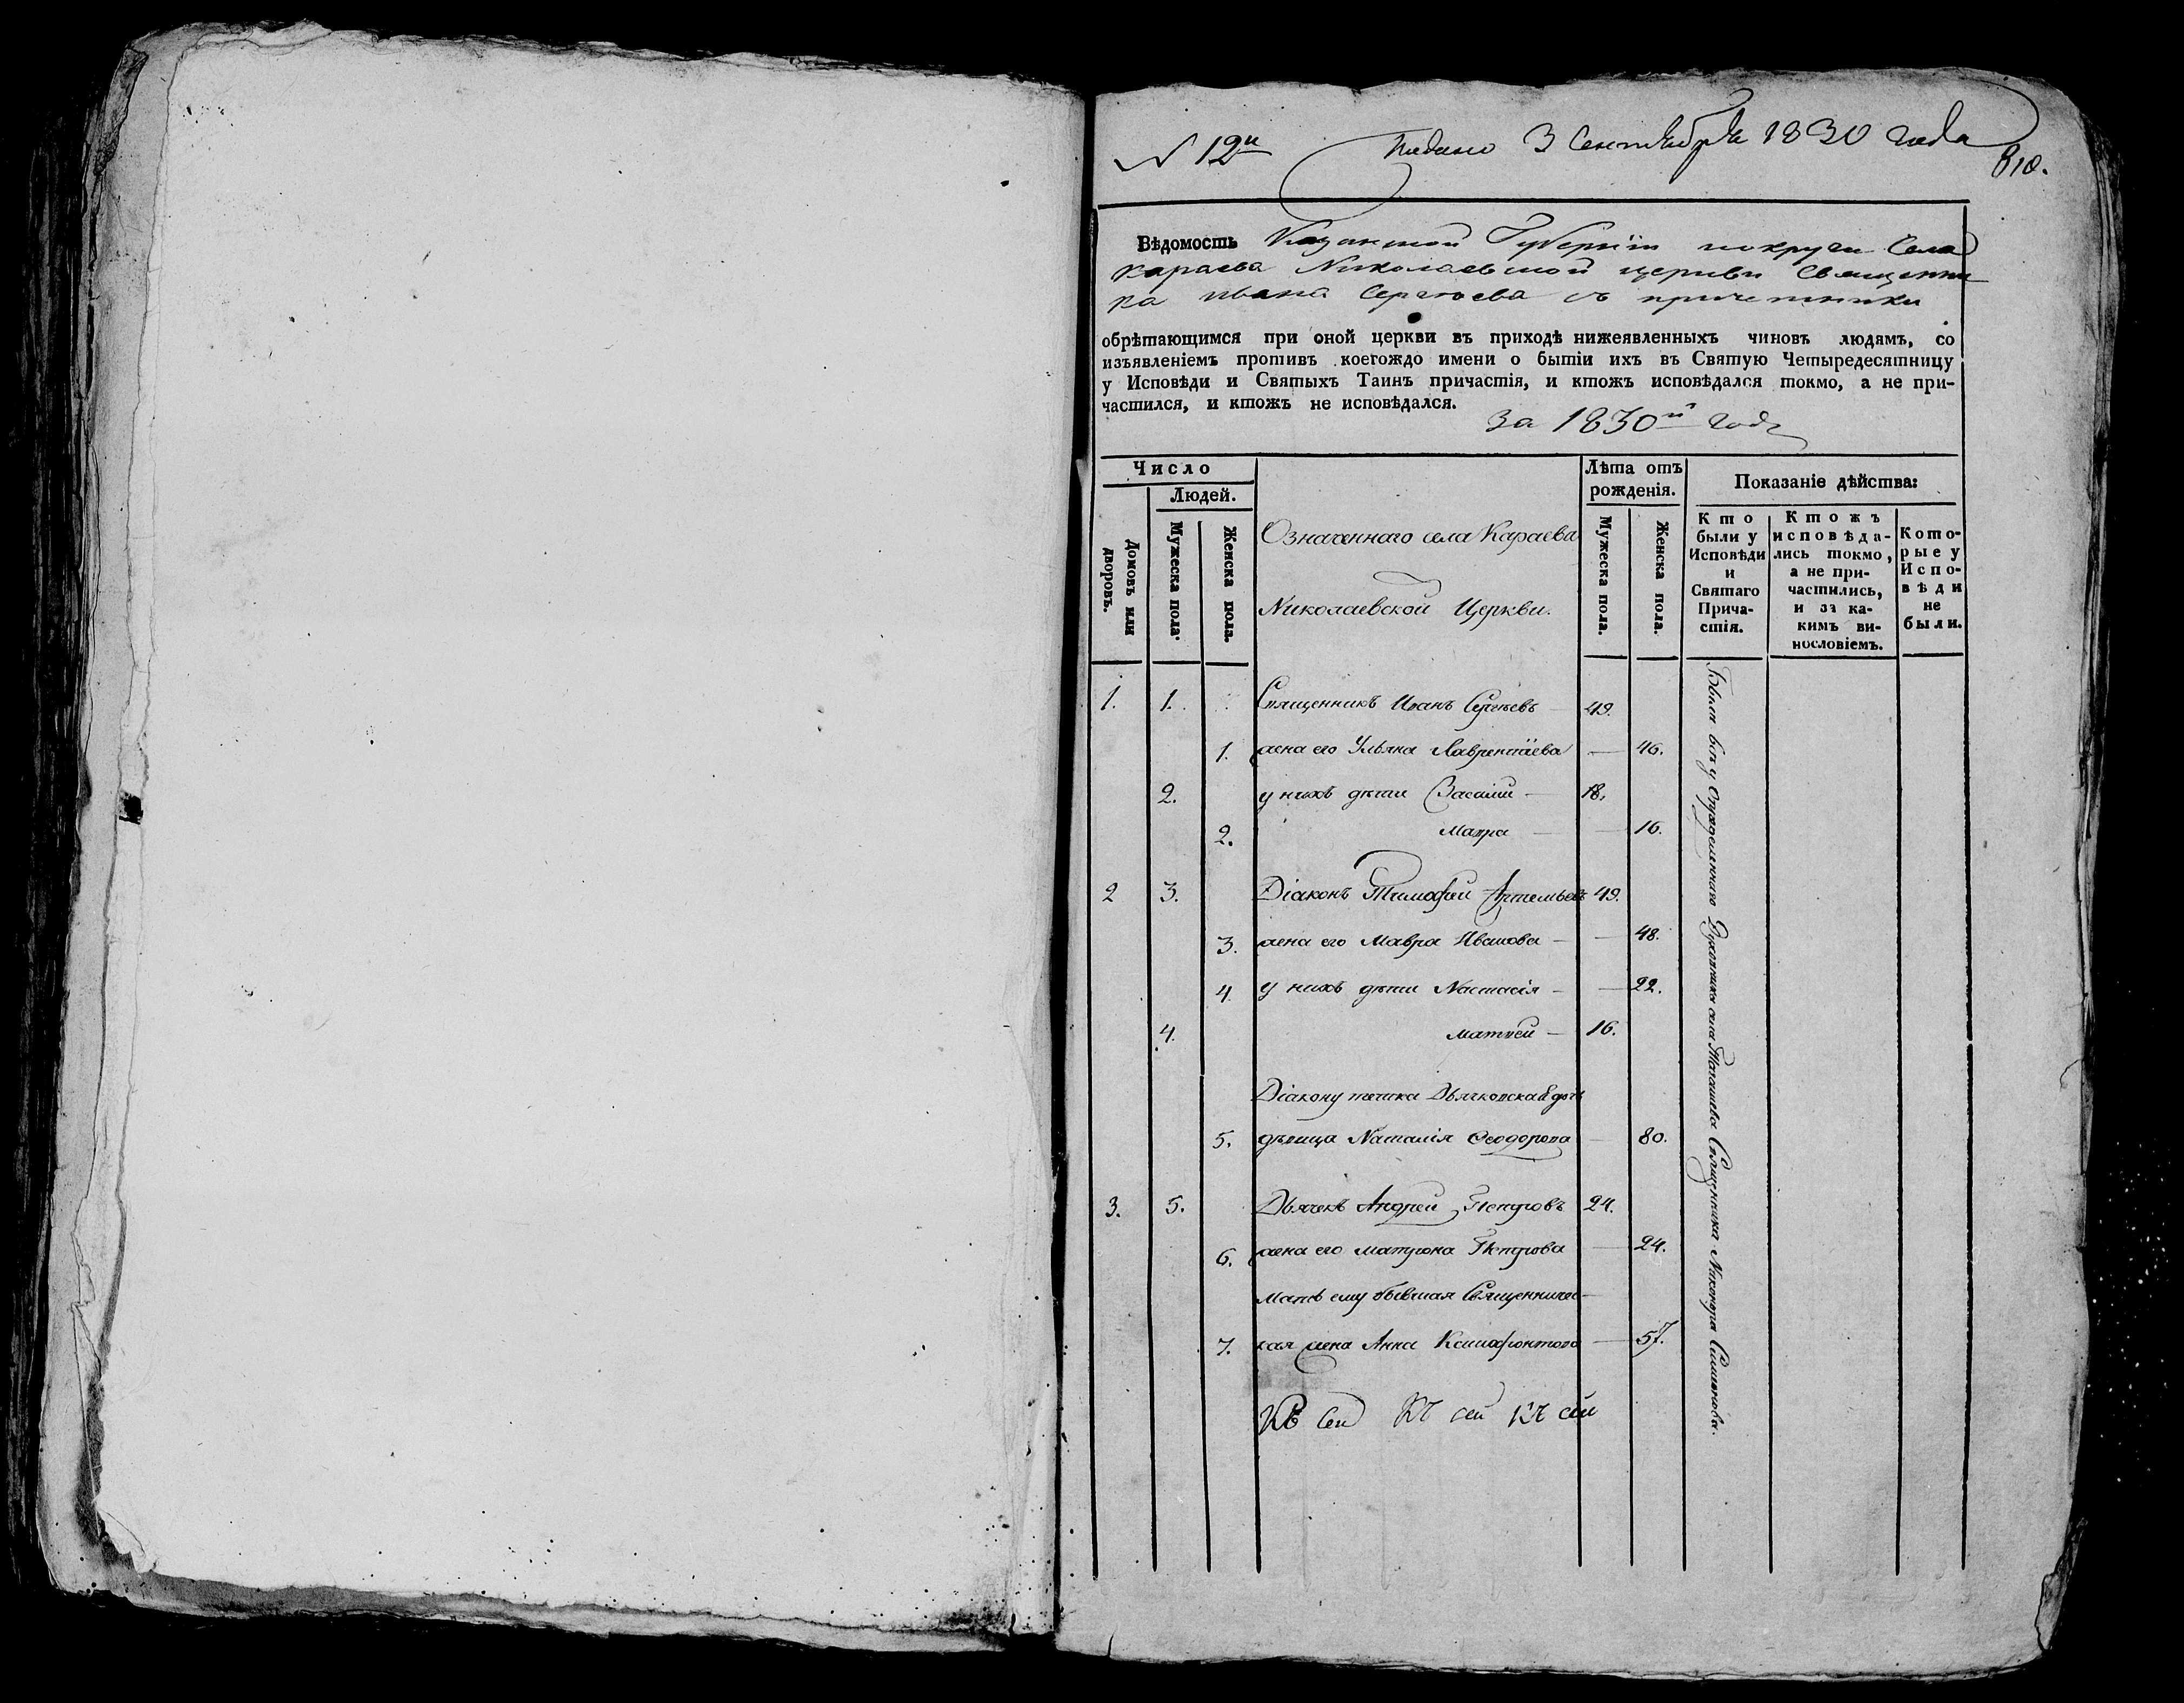 N 12й
Подано 3 Сентября 1830 года
810.
Вѣдомость Казанской Губернїи округи Села
Караева Николаевской церкви Священни
ка Ивана Сергѣева съ причетники
обрѣтающимся при оной церкви въ приходѣ нижеявленныхъ чиновъ людямъ, со
изъявленіемъ противъ коегождо имени о бытіи ихъ въ Святую Четыредесятницу
у Исповѣди и Святыхъ Таинъ причастія, и ктожъ исповѣдался токмо, а не при-
частился, и ктожъ не исповѣдался.
За 1830й годъ
Число
Людей.
Домовъ или дворовъ.
Мужеска пола.
Женска пола.
Означеннаго села Караева
Николаевской Церкви.
Лѣта отъ рожденія.
Мужеска пола.
Женска пола.
Показаніе дѣйства:
Кто
были у
Исповѣди
и
Святаго
Прича-
стія.
Ктожъ
исповѣда-
лись токмо,
а не при-
частились,
и за ка-
кимъ ви-
нословіемъ.
Кото-
рые у
Испо-
вѣди
не
были.
1. 1. Священникъ Иванъ Сергѣевъ 49.
1. жена его Ульяна Лаврентїева — 46.
2. у нихъ дѣти Василий — 18.
2. Мавра — 16.
2 3. Діаконъ Тимофей Артемьевъ 49.
3. жена его Мавра Иванова — 48.
4. у нихъ дѣти Настасія — 22.
4. Матвей — 16.
Діакону тетка Дьячковская дочь
5. дѣвица Наталія Ѳеодорова — 80.
3. 5. Дьячекъ Андрей Петровъ 24.
6. жена его Матрона Петрова — 24.
Мать ему бывшая Священничес-
7. кая жена Анна Ксинофонтова — 57.
Къ сей Къ сей Къ сей
Были всѣ у Опредѣленнаго Духовника села Священника Никонора Симонова.